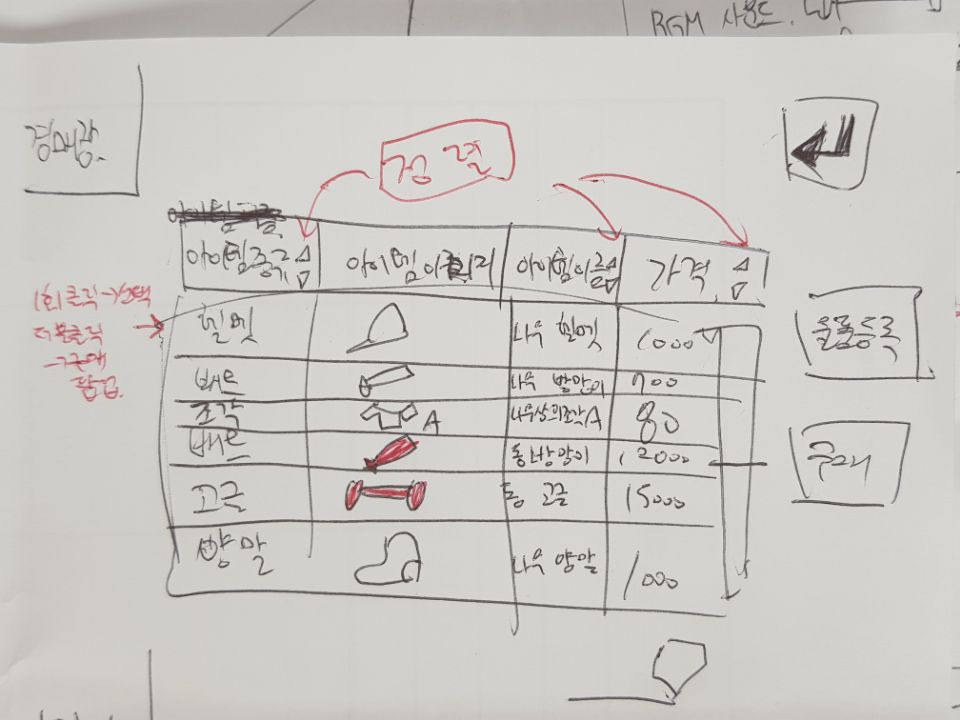 BGM 사운드.
경매장
정렬
아이템종류 아이템이미지 아이템이름 가격
헬멧 나무 헬멧 1000
배트 나무 방망이 900
조각 A 나무상의조각A 80
배트 동 방망이 2000
고급 동 고급 15000
양말 나무 양말 1000
1회 클릭→선택
더블클릭
→구매
팝업.
물품등록
구매